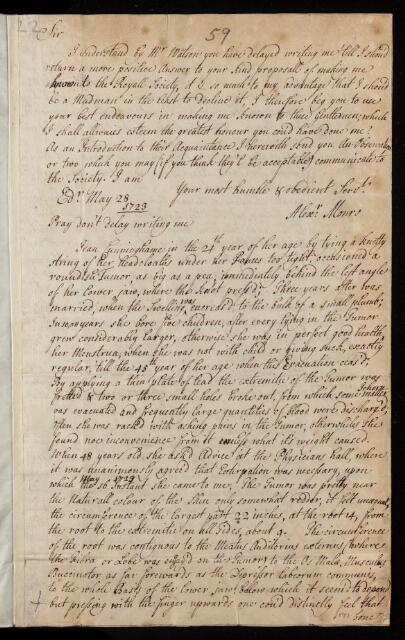 22 Sir 59
I understand by Mr Watson you have delayed writing me till I should
return a more positive Answer to your kind proposall of making me
known to the Royall Society, it is so much to my advantage that I should
be a Madman in the least to decline it, I therefore beg you to use
your best endeavours in making me known to these Gentlemen, which
I shall allwises esteem the greatest honour you could have done me.
As an Introduction to their Acquaintance I herewith send you An Observation
or two which you may (if you think they'l be acceptable) communicate to
the Society. I am
Your most humble & obedient Servt.
Edr. May 28 1723
Alexr. Monro
Pray don't delay writing me
Jean Cunninghame in the 25th year of her age by tying a knotty
string of her head cloaths under her too tight, occasioned a
round Tumor as big as a pea, immediately behind the left angle
of her lower jaw, where the knot press'd. Three years after was
married, when the swelling was encreas'd to the bulk of a small plumb;
In years she bore five children, after every lying in the Tumor
grew considerably larger, otherwise she was in perfect good health
her Menstrua, when she was not with child or giving suck, exactly
regular, till the 45th year of her age when this Evacuation ceas'd.
By applying a thin plate of lead the extremitie of the Tumor was
fretted & two or three small holes broke out, from which some matter
was evacuated and frequently large quantities of blood were discharg'd;
often she was rack'd with aking pains in the Tumor, otherwhiles she
found noe inconvenience from it unless what its weight caused.
When 48 years old she ask'd Advice at the Physicians hall, where
it was unanimously agreed that Extirpation was necessary, upon
which May 16 1723 she came to me, The Tumor was pretty near
the Naturall colour of the Skin only somewhat redder, it felt
the circumference of the largest part 22 inches, at the root 14, from
the root to the extremitie on all sides, about 9. The circumference
of the root was contiguous to the Meatus Auditorius externus (where
the or Lobe was on the Tumor) to the Os Mala, Musculus
Buccinator as far forewards as the Depressor labiorum communis,
to the whole basis of the lower jaw, below which it seem'd to depend
but pressing with the finger upwards one could distinctly feel that
bone